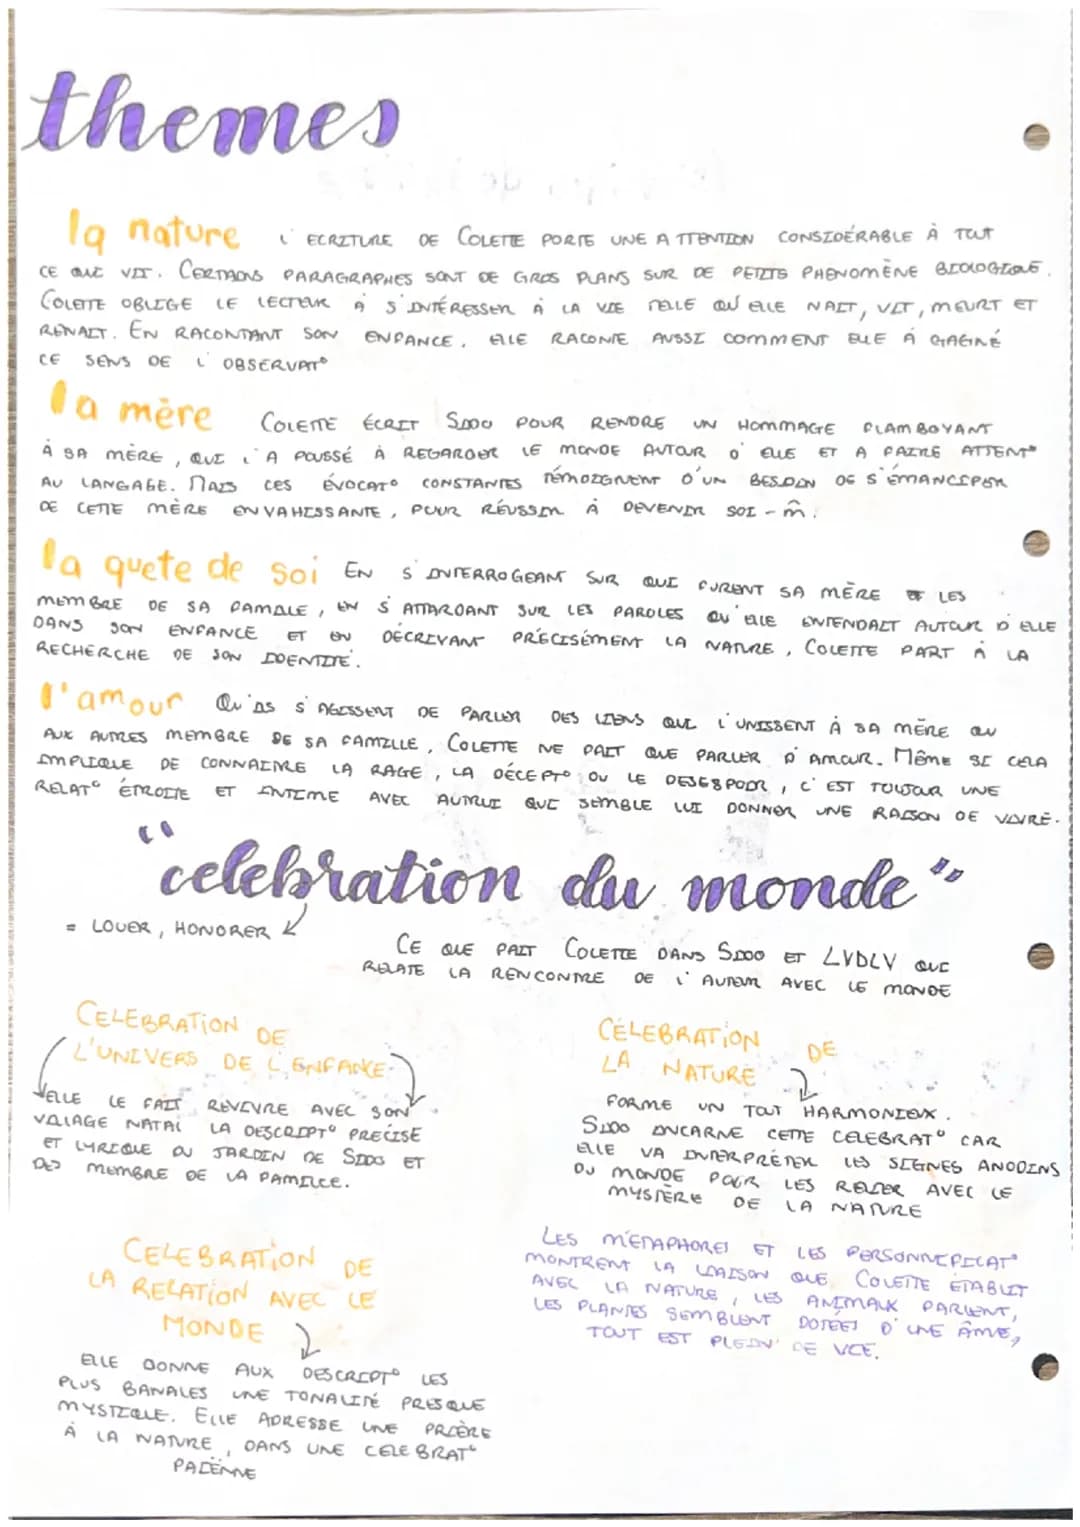 themes
la nature L'ECRITURE DE COLETTE PORTE UNE ATTENTION CONSIDÉRABLE À TOUT
CE QUI VIT. CERTAINS PARAGRAPHES SONT DE GROS PLANS SUR DE PETITS PHENOMÈNE BIOLOGIQUE.
COLETTE OBLIGE LE LECTEUR À S'INTÉRESSER À LA VIE TELLE QU'ELLE NAIT, VIT, MEURT ET
RENAIT. EN RACONTANT SON ENFANCE, ELLE RACONTE AUSSI COMMENT ELLE À GAGNÉ
CE SENS DE L'OBSERVAT°
la mère COLETTE ÉCRIT SIDO POUR RENDRE UN HOMMAGE FLAMBOYANT
À SA MÈRE, QUI L'A POUSSÉ À REGARDER LE MONDE AUTOUR D'ELLE ET A FAIRE ATTENT°
AU LANGAGE. MAIS CES ÉVOCAT° CONSTANTES TÉMOIGNENT D'UN BESOIN DE S'ÉMANCIPER
DE CETTE MÈRE ENVAHISSANTE, POUR RÉUSSIR À DEVENIR SOI-M̂.
la quete de soi EN S'INTERROGEANT SUR QUI FURENT SA MÈRE LES
MEMBRE DE SA FAMILLE, EN S'ATTARDANT SUR LES PAROLES QU'ELLE ENTENDAIT AUTOUR D'ELLE
DANS SON ENFANCE ET EN DÉCRIVANT PRÉCISÉMENT LA NATURE, COLETTE PART À LA
RECHERCHE DE SON IDENTITÉ.
l'amour QU'ILS S'AGISSENT DE PARLER DES LIENS QUI L'UNISSENT À SA MÈRE OU
AUX AUTRES MEMBRE DE SA FAMILLE, COLETTE NE FAIT QUE PARLER D'AMOUR. MÊME SI CELA
IMPLIQUE DE CONNAITRE LA RAGE, LA DÉCEPT° OU LE DESESPOIR, C'EST TOUJOUR UNE
RELAT° ÉTROITE ET INTIME AVEC AUTRUI QUI SEMBLE LUI DONNER UNE RAISON DE VIVRE.
"celebration du monde"
= LOUER, HONORER
CE QUE FAIT COLETTE DANS SIDO ET LVDLV QUI
RELATE LA RENCONTRE DE L'AUTEUR AVEC LE MONDE
CELEBRATION DE
L'UNIVERS DE L'ENFANCE
ELLE LE FAIT REVIVRE AVEC SON
VILLAGE NATAL LA DESCRIPT° PRECISE
ET LYRIQUE DU JARDIN DE SIDO ET
DES MEMBRE DE LA FAMILLE.
CÉLEBRATION DE
LA NATURE
FORME UN TOUT HARMONIEUX.
SIDO INCARNE CETTE CELEBRAT° CAR
ELLE VA INTERPRÉTER LES SIGNES ANODINS
DU MONDE POUR LES RELIER AVEC LE
MYSTÈRE DE LA NATURE
LES MÉTAPHORES ET LES PERSONNIFICAT°
MONTRENT LA LIAISON QUE COLETTE ÉTABLIT
AVEC LA NATURE, LES ANIMAUX PARLENT,
LES PLANTES SEMBLENT DOTÉES D'UNE ÂME,
TOUT EST PLEIN DE VIE.
CELEBRATION DE
LA RELATION AVEC LE
MONDE
ELLE DONNE AUX DESCRIPT° LES
PLUS BANALES UNE TONALITÉ PRESQUE
MYSTIQUE. ELLE ADRESSE UNE PRIÈRE
À LA NATURE, DANS UNE CELEBRAT°
PAÏENNE